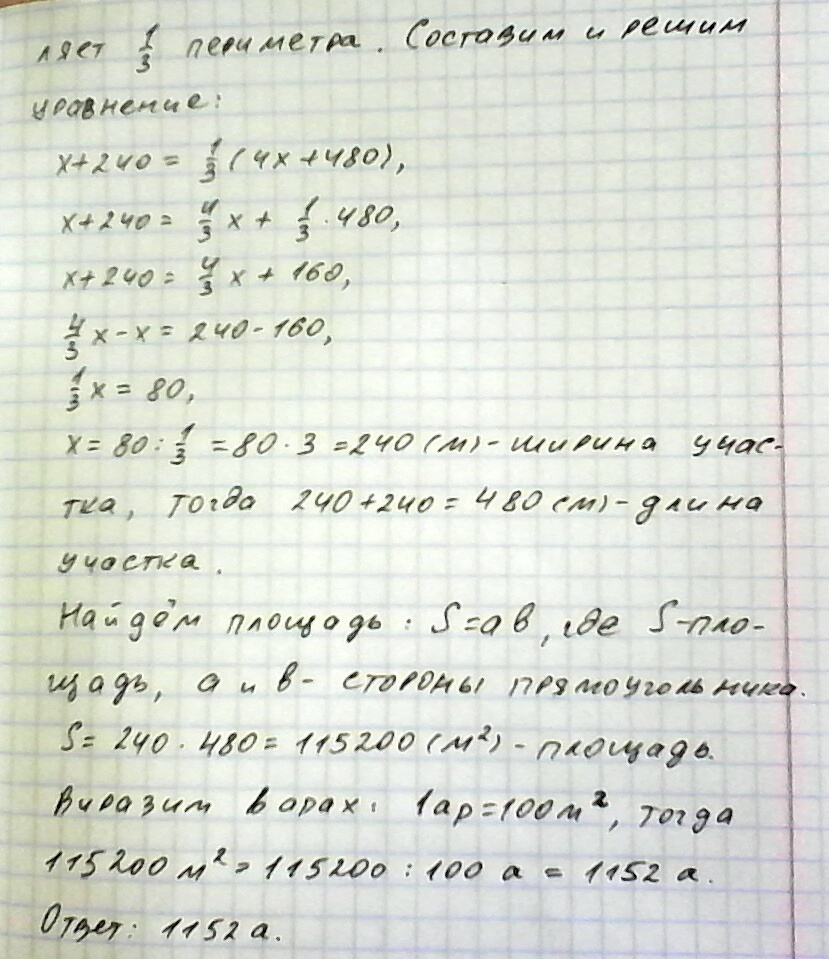 ляет 1/3 периметра. Составим и решим
уравнение:
x+240 = 1/3 (4x+480),
x+240 = 4/3 x + 1/3 · 480,
x+240 = 4/3 x + 160,
4/3 x - x = 240 - 160,
1/3 x = 80,
x = 80 : 1/3 = 80 · 3 = 240 (м) - ширина учас-
тка, тогда 240+240 = 480 (м) - длина
участка.
Найдём площадь: S = ав, где S - пло-
щадь, а и в - стороны прямоугольника.
S = 240 · 480 = 115200 (м²) - площадь.
Выразим в арах: 1 ар = 100 м², тогда
115200 м² = 115200 : 100 а = 1152 а.
Ответ: 1152 а.